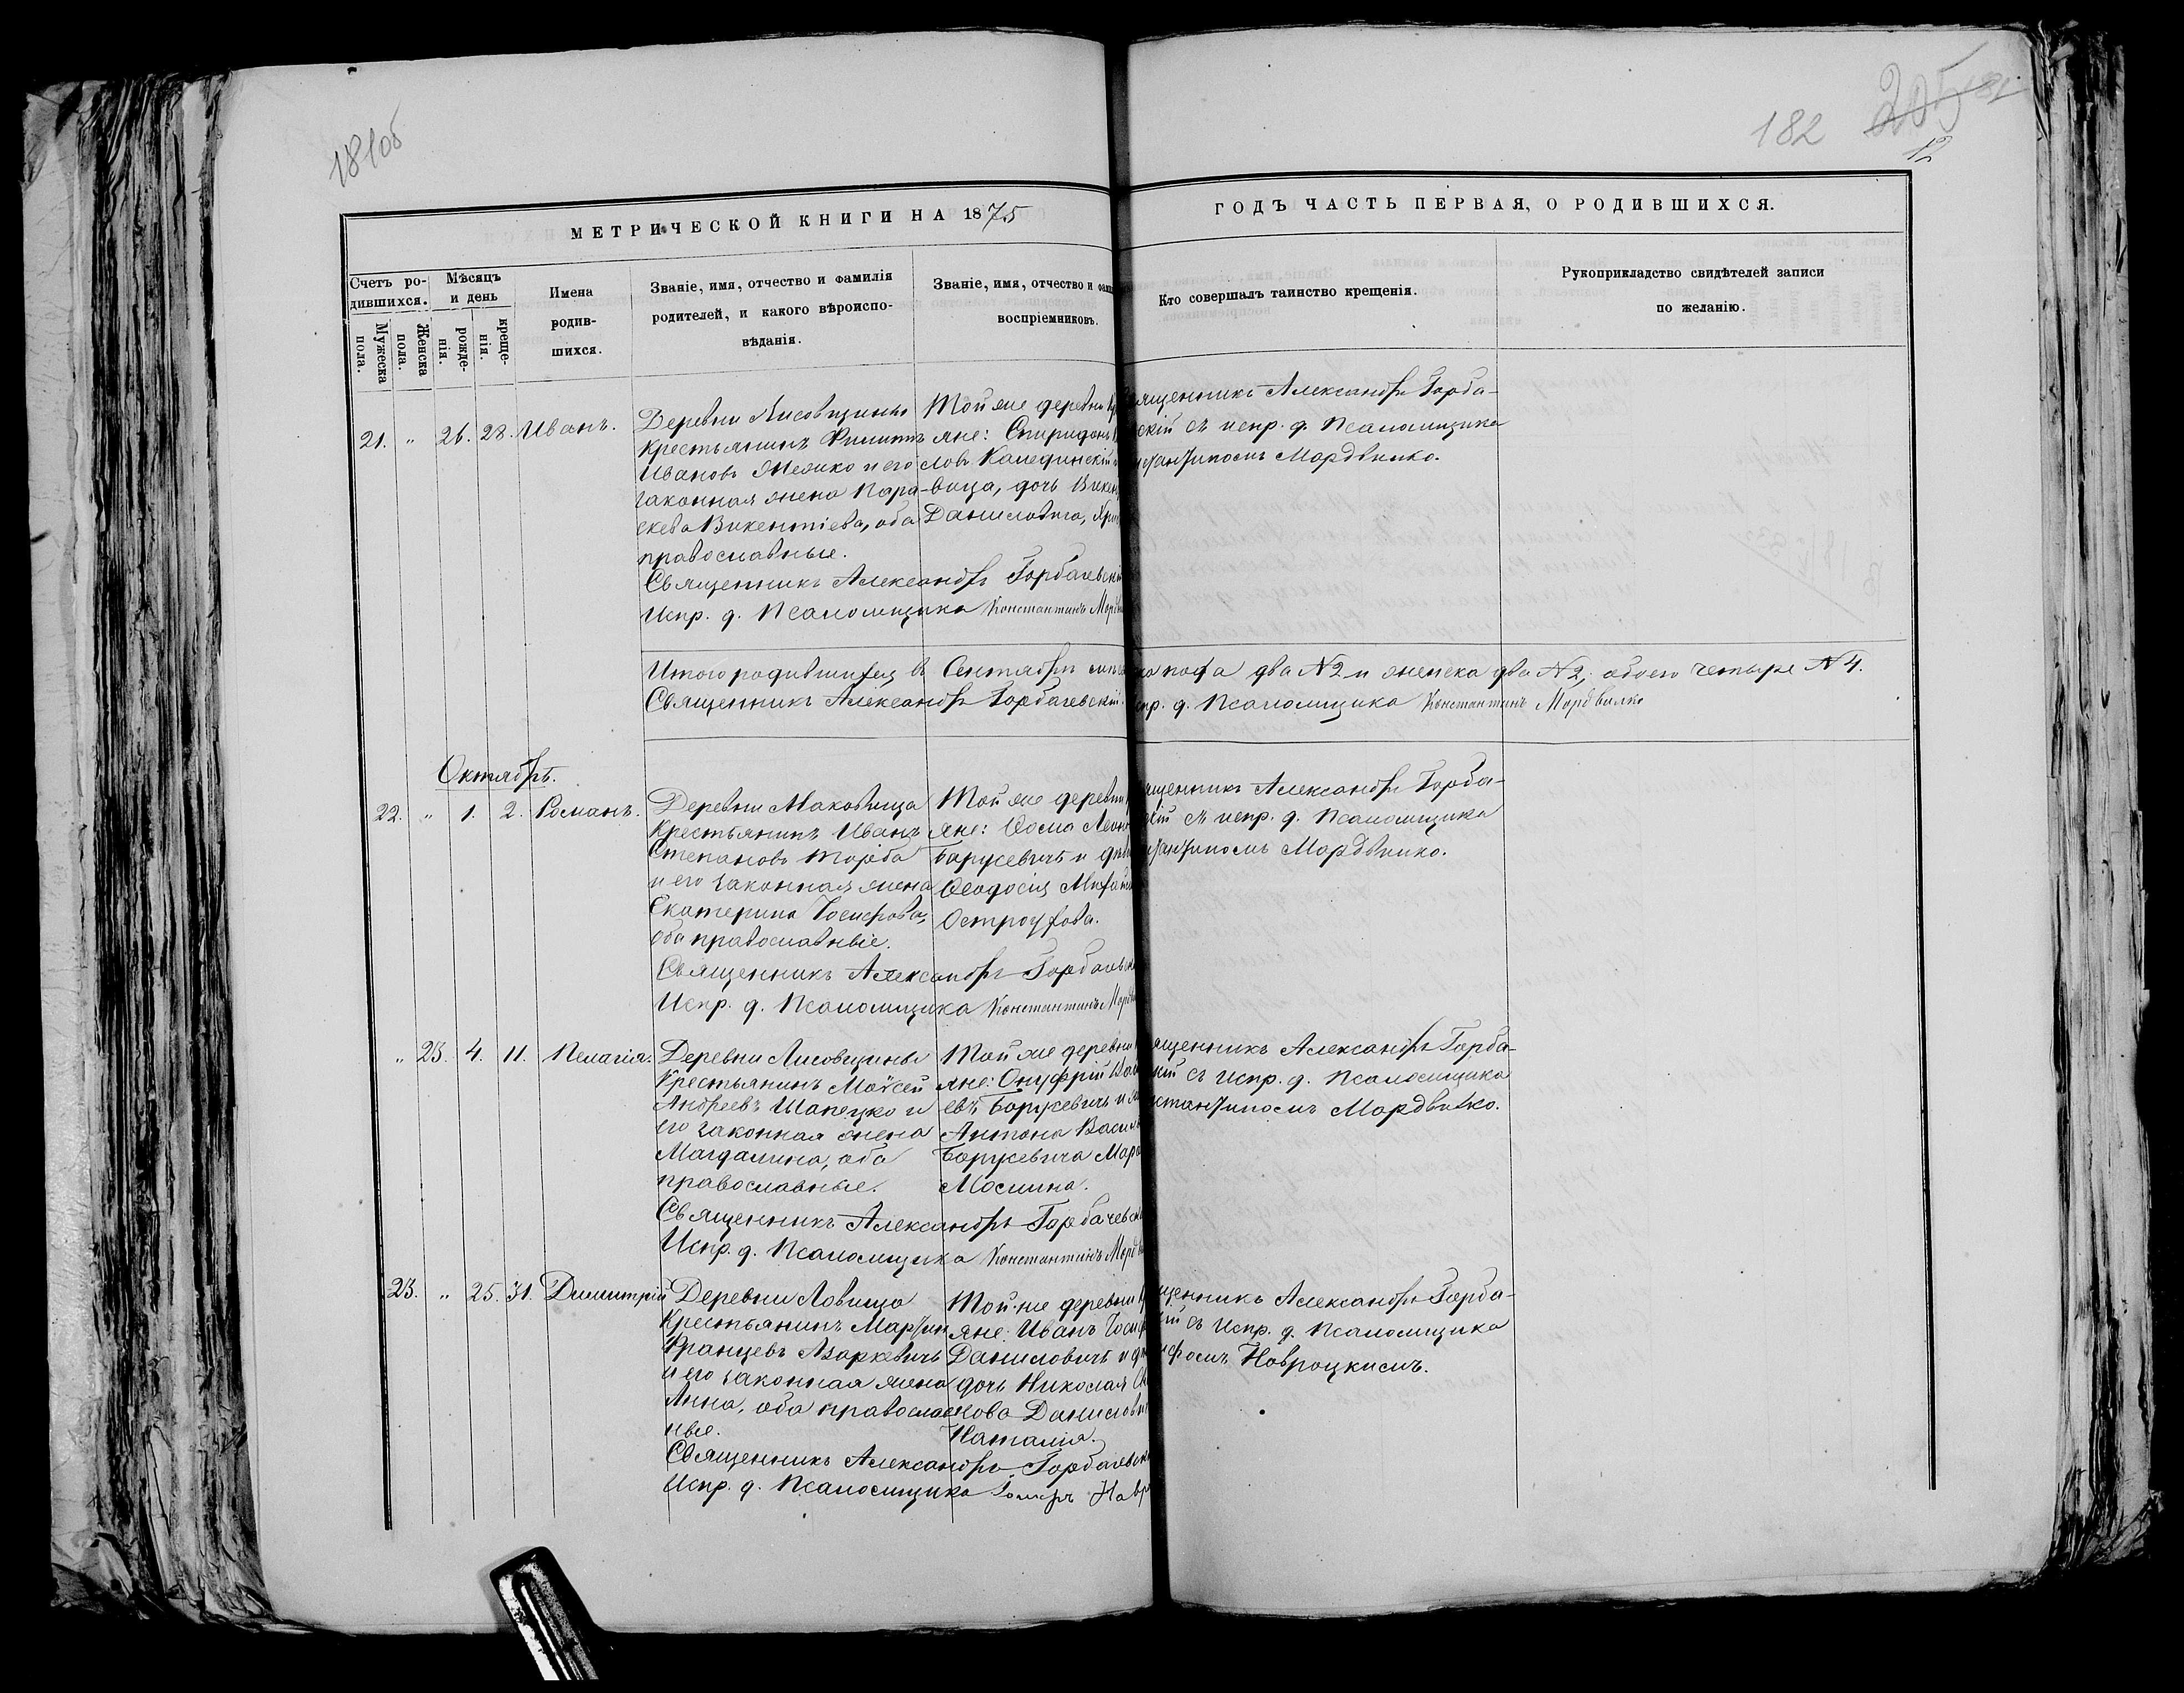 18105
182 205 182
12
МЕТРИЧЕСКОЙ КНИГИ НА 1875
ГОДЪ ЧАСТЬ ПЕРВАЯ, О РОДИВШИХСЯ.
Счетъ ро-
дившихся.
Мужеска
пола.
Женска
пола.
Мѣсяцъ
и день
рожде-
нія.
креще-
нія.
Имена
родив-
шихся.
Званіе, имя, отчество и фамилія
родителей, и какого вѣроиспо-
вѣданія.
Званіе, имя, отчество и фами
воспріемниковъ.
Кто совершалъ таинство крещенія.
Рукоприкладство свидѣтелей записи
по желанію.
21. " 26. 28. Иванъ.
Деревни Лисовщины
Крестьянинъ Филиппъ
Ивановъ и его
законная жена Пара-
скева Викентіева, оба
православные.
Священникъ Александръ Горбачевскій
Испр. д. Псаломщика Константинъ Мордви
Той же деревни кр
яне: Спиридонъ
словъ
вица, дочь Викен
Даниловича,
ященникъ Александръ Горба-
скій съ испр. д. Псаломщика
нстантиномъ Мордвилко.
Итого родившихся въ Сентябрѣ ка пола два №2 и женска два №2, обоего четыре №4.
Священникъ Александръ Горбачевскій. пр. д. Псаломщика Константинъ Мордвилко
Октябрь.
22. " 1. 2. Романъ.
Деревни Маковища
Крестьянинъ Иванъ
Степановъ Торба
и его законная жена
Екатерина Іосифова,
оба православные.
Священникъ Александръ Горбачевск
Испр. д. Псаломщика Константинъ Мордв
Той же деревни
яне: Ѳома
Барусевичъ и
Ѳеодосія Михаил
Остроухова.
ященникъ Александръ Горба-
кій съ испр. д. Псаломщика
нстантиномъ Мордвилко.
" 23. 4. 11. Пелагія.
Деревни Лисовщины
Крестьянинъ Моѵсей
Андреевъ Шапоцко и
его законная жена
Магдалина, оба
православные.
Священникъ Александръ Горбачевск
Испр. д. Псаломщика Константинъ Морд
Той же деревни
яне: Онуфрій
евъ Борусевичъ и
Антона Васил
Борусевича Мар
Мосиина.
ященникъ Александръ Горба-
кій съ Испр. д. Псаломщика
стантиномъ Мордвилко.
23. " 25. 31. Димитрій
Деревни Ловища
Крестьянинъ Мартин
Францевъ Азаркевичъ
и его законная жена
Анна, оба православ
ные.
Священникъ Александръ Горбачевск
Испр. д. Псаломщика Навр
Той-же деревни
яне: Иванъ Іосиф
Даниловичъ и
дочь Николая
нова Данилови
Наталія.
щенникъ Александръ Горба-
ій съ Испр. д. Псаломщика
ифомъ Навроцкимъ.